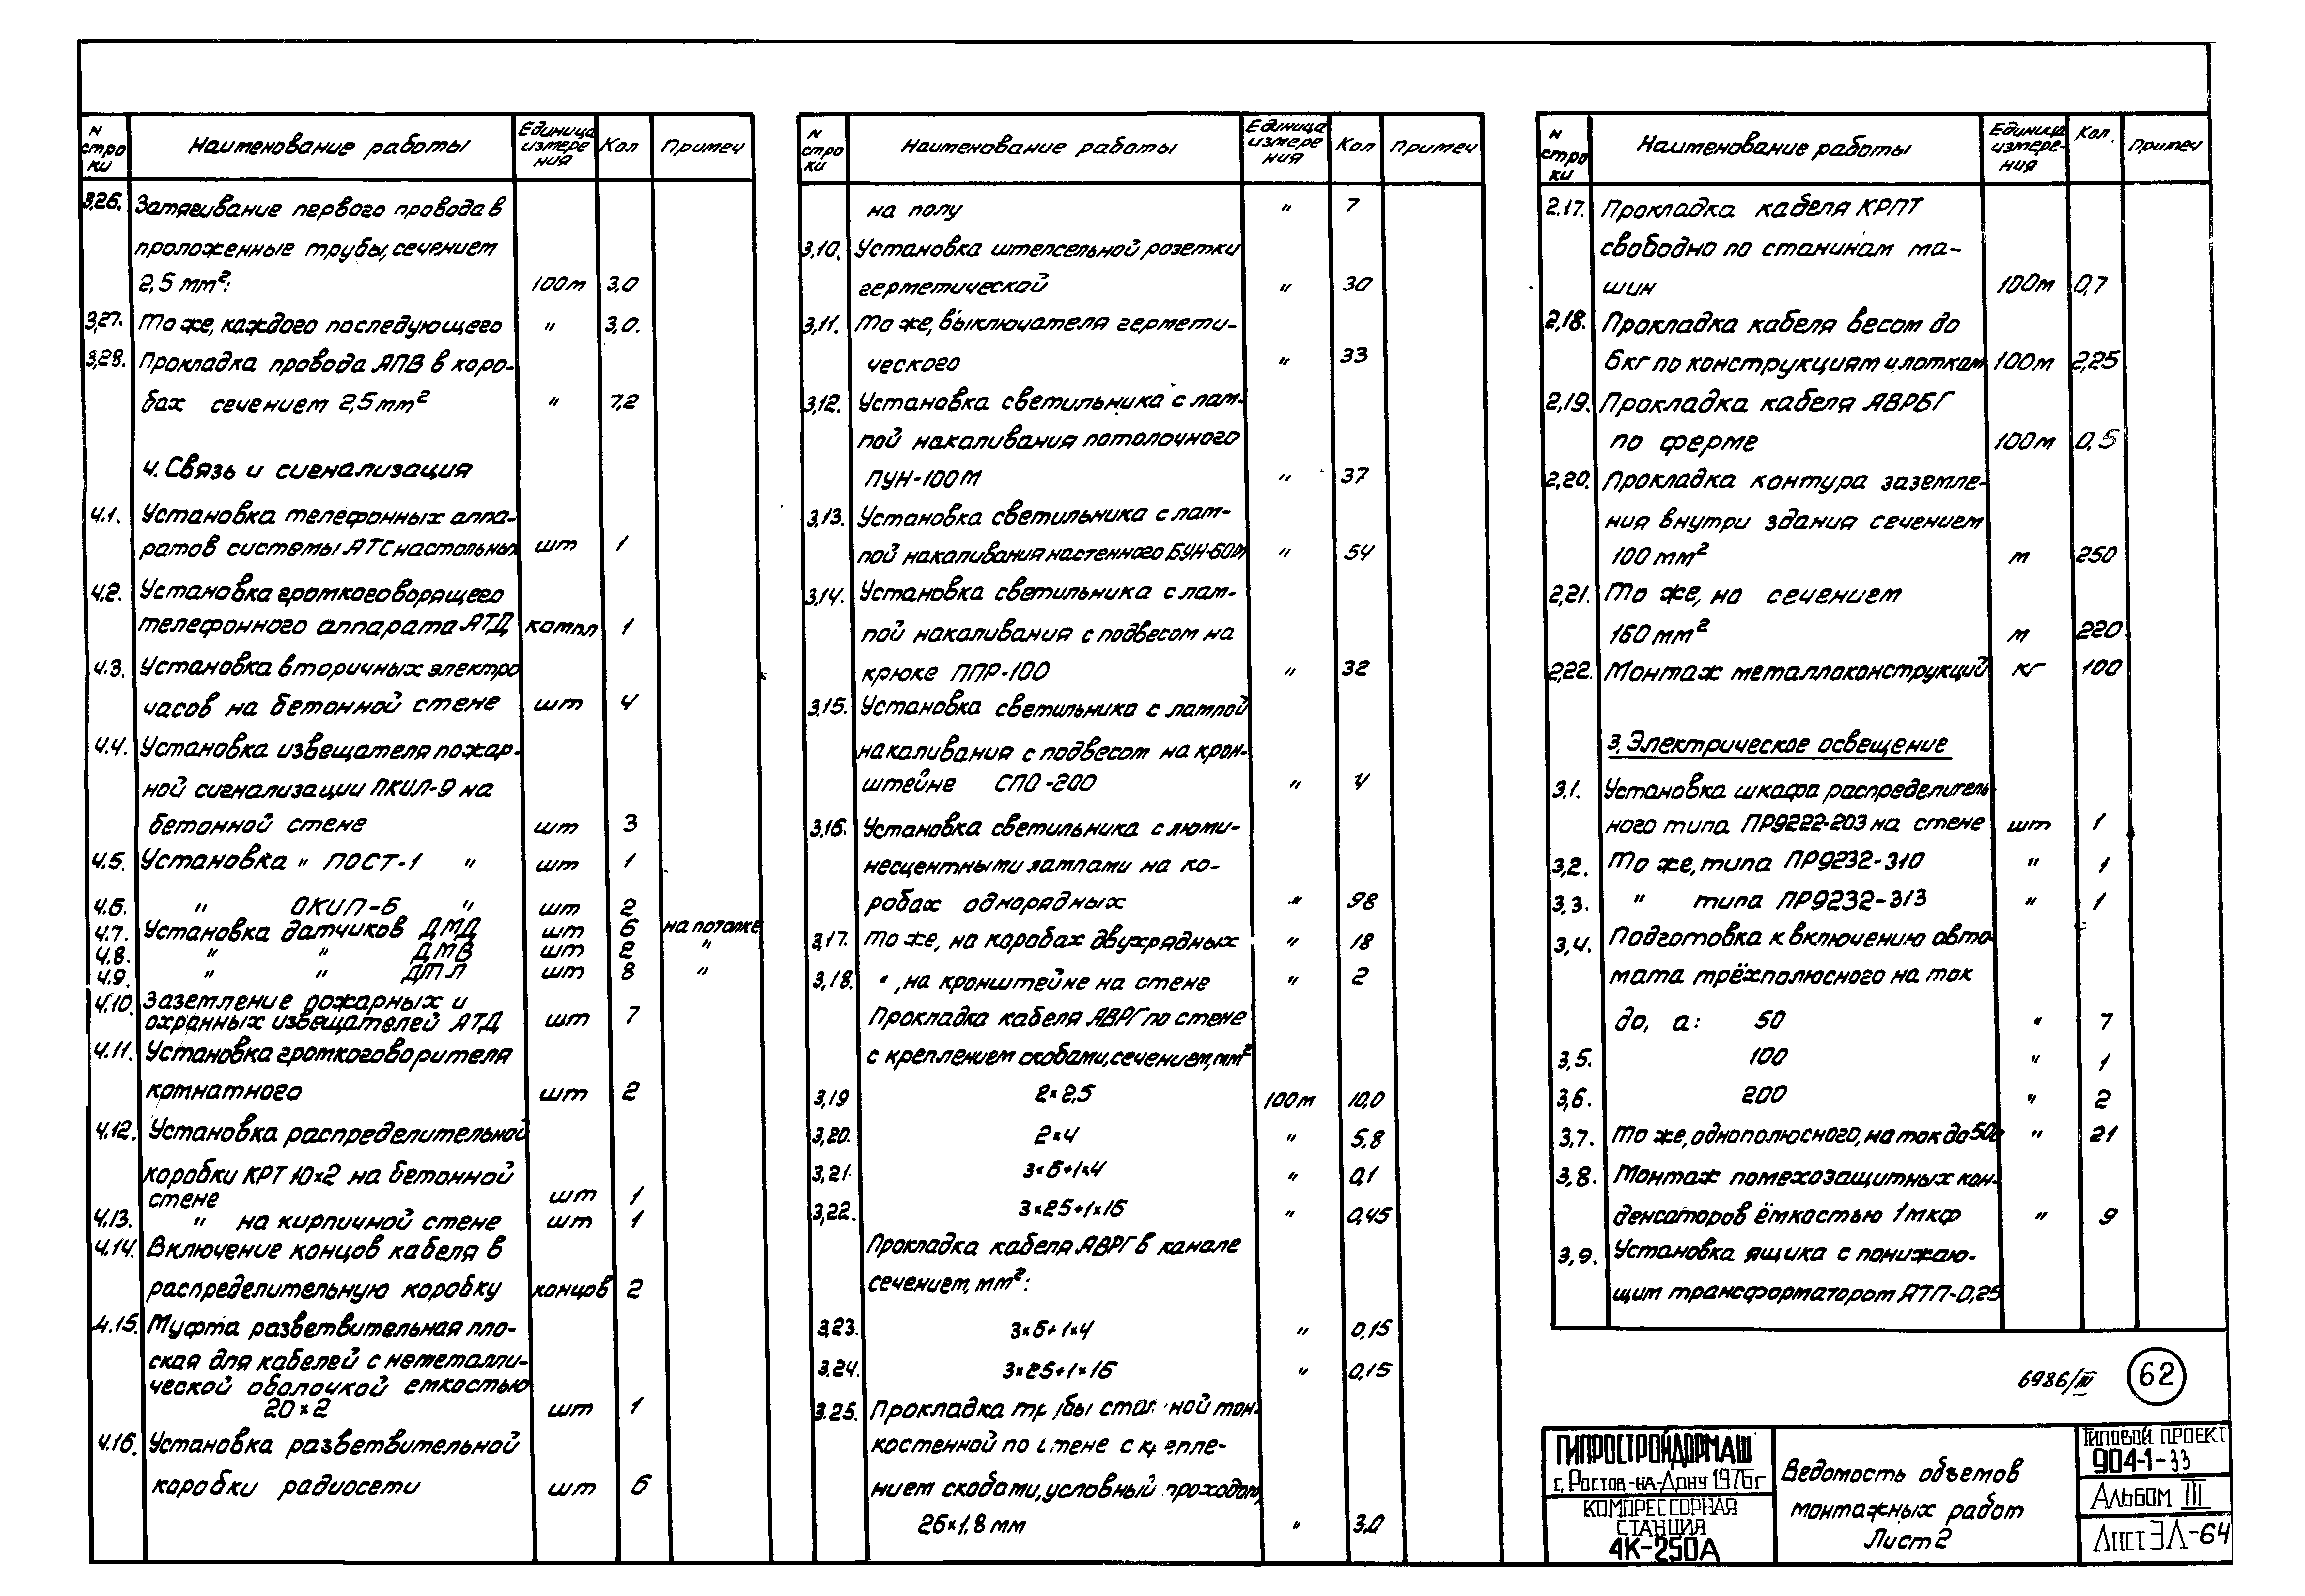 N строки Наименование работы Единица измерения Кол Примеч
3,26. Затягивание первого провода в
проложенные трубы, сечением
2,5 мм²: 100м 3,0
3,27. То же, каждого последующего " 3,0.
3,28. Прокладка провода АПВ в коро-
бах сечением 2,5 мм² " 7,2
4. Связь и сигнализация
4.1. Установка телефонных аппа-
ратов системы АТС настольных шт 1
4.2. Установка громкоговорящего
телефонного аппарата АТД компл 1
4.3. Установка вторичных электро
часов на бетонной стене шт 4
4.4. Установка извещателя пожар-
ной сигнализации ПКИЛ-9 на
бетонной стене шт 3
4.5. Установка " ПОСТ-1 " шт 1
4.6. " ОКИП-Б " шт 2
4.7. Установка датчиков ДМД шт 6 на потолке
4.8. " " ДМВ шт 2 "
4.9. " " ДТЛ шт 8 "
4.10. Заземление пожарных и
охранных извещателей АТД шт 7
4.11. Установка громкоговорителя
комнатного шт 2
4.12. Установка распределительной
коробки КРТ 10×2 на бетонной
стене шт 1
4.13. " на кирпичной стене шт 1
4.14. Включение концов кабеля в
распределительную коробку концов 2
4.15. Муфта разветвительная пло-
ская для кабелей с неметалли-
ческой оболочкой емкостью
20×2 шт 1
4.16. Установка разветвительной
коробки радиосети шт 6
N строки Наименование работы Единица измерения Кол Примеч
на полу " 7
3,10. Установка штепсельной розетки
герметической " 30
3,11. То же, выключателя гермети-
ческого " 33
3,12. Установка светильника с лам-
пой накаливания потолочного
ПУН-100М " 37
3,13. Установка светильника с лам-
пой накаливания настенного БУН-60М " 54
3,14. Установка светильника с лам-
пой накаливания с подвесом на
крюке ППР-100 " 32
3,15. Установка светильника с лампой
накаливания с подвесом на крон-
штейне СПО-200 " 4
3,16. Установка светильника с люми-
несцентными лампами на ко-
робах однорядных " 98
3,17. То же, на коробах двухрядных " 18
3,18. ", на кронштейне на стене " 2
Прокладка кабеля АВРГ по стене
с креплением скобами, сечением, мм²
3,19 2×2,5 100м 10,0
3,20. 2×4 " 5,8
3,21. 3×6+1×4 " 0,1
3,22. 3×25+1×16 " 0,45
Прокладка кабеля АВРГ в канале
сечением, мм²:
3,23. 3×6+1×4 " 0,15
3,24. 3×25+1×16 " 0,15
3.25. Прокладка трубы стальной тон-
костенной по стене с крепле-
нием скобами, условный проходом,
26×1,8 мм " 3,0
N строки Наименование работы Единица измере-ния Кол. Примеч
2,17. Прокладка кабеля КРПТ
свободно по станинам ма-
шин 100м 0,7
2,18. Прокладка кабеля весом до
6кг по конструкциям и лоткам 100м 2,25
2,19. Прокладка кабеля АВРБГ
по ферме 100м 0,5
2,20. Прокладка контура заземле-
ния внутри здания сечением
100 мм² м 250
2,21. То же, но сечением
160 мм² м 220
2,22. Монтаж металлоконструкций кг 100
3. Электрическое освещение
3.1. Установка шкафа распределитель
ного типа ПР9222-203 на стене шт 1
3,2. То же, типа ПР9232-310 " 1
3,3. " типа ПР9232-313 " 1
3,4. Подготовка к включению авто-
мата трёхполюсного на ток
до, а: 50 " 7
3,5. 100 " 1
3,6. 200 " 2
3,7. То же, однополюсного, на ток до 50а " 21
3,8. Монтаж помехозащитных кон-
денсаторов ёмкостью 1 мкф " 9
3,9. Установка ящика с понижаю-
щим трансформатором ЯТП-0,25
6986/III 62
ГИПРОСТРОЙДОРМАШ
г. Ростов-на-Дону 1976г
КОМПРЕССОРНАЯ
СТАНЦИЯ
4К-250А
Ведомость объемов
монтажных работ
Лист 2
Типовой проект
904-1-33
Альбом III
Лист ЭЛ-64